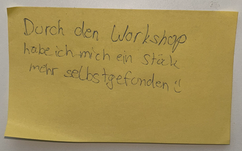 Durch den Workshop
habe ich mich ein Stück
mehr selbstgefunden :)